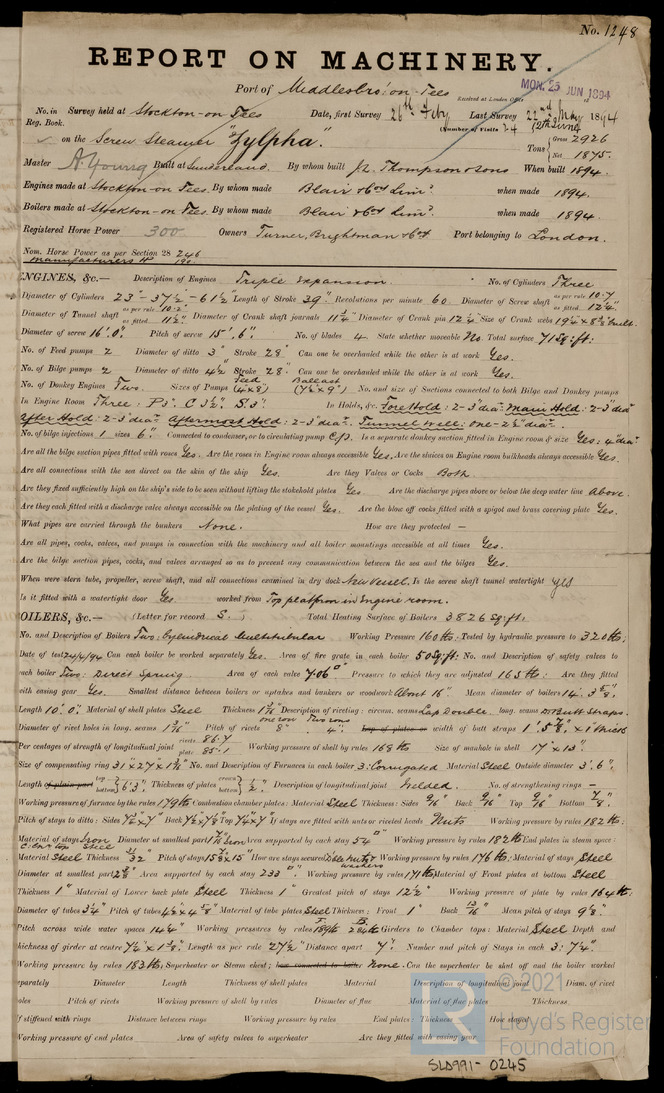 No. 1248
REPORT ON MACHINERY.
Port of Middlesbro' on Tees
MON. 25 JUN 1894
Received at London Office
No. in Survey held at Stockton-on Tees Date, first Survey 26th Feby Last Survey 22nd May 1894
Reg. Book. (Number of Visits 24 12th June
on the Screw Steamer "Zylpha". Tons { Gross 2926 Net 1875.
Master A. Young Built at Sunderland. By whom built J. L. Thompson & sons When built 1894.
Engines made at Stockton-on Tees. By whom made Blair & Co Limd. when made 1894.
Boilers made at Stockton-on Tees. By whom made Blair & Co Limd. when made 1894.
Registered Horse Power 300 Owners Turner, Brightman & Co Port belonging to London.
Nom. Horse Power as per Section 28 246
ENGINES, &c.— Description of Engines Triple Expansion. No. of Cylinders Three
Diameter of Cylinders 23"-37½-61½" Length of Stroke 39" Revolutions per minute 60. Diameter of Screw shaft as per rule 10.7 as fitted 12¼"
Diameter of Tunnel shaft as per rule 10.2 as fitted 11½" Diameter of Crank shaft journals 11¾" Diameter of Crank pin 12¼" Size of Crank webs 19¼ x 8½ built.
Diameter of screw 16'.0" Pitch of screw 15'.6" No. of blades 4 State whether moveable No Total surface 71 Sq: ft:
No. of Feed pumps 2 Diameter of ditto 3" Stroke 28" Can one be overhauled while the other is at work Yes.
No. of Bilge pumps 2 Diameter of ditto 4½ Stroke 28" Can one be overhauled while the other is at work Yes.
No. of Donkey Engines Two. Sizes of Pumps Feed (4 x 8) Ballast (7½ x 9") No. and size of Suctions connected to both Bilge and Donkey pumps
In Engine Room Three: P3". C 3½". S 3". In Holds, &c. Fore Hold: 2-3"dia: Main Hold: 2-3"dia
After Hold: 2-3"dia: Aftermost Hold: 2-3"dia: Tunnel Well: one-2½"dia:
No. of bilge injections 1 sizes 6" Connected to condenser, or to circulating pump C/P. Is a separate donkey suction fitted in Engine room & size Yes: 4"dia
Are all the bilge suction pipes fitted with roses Yes. Are the roses in Engine room always accessible Yes. Are the sluices on Engine room bulkheads always accessible Yes.
Are all connections with the sea direct on the skin of the ship Yes. Are they Valves or Cocks Both.
Are they fixed sufficiently high on the ship's side to be seen without lifting the stokehold plates Yes Are the discharge pipes above or below the deep water line Above.
Are they each fitted with a discharge valve always accessible on the plating of the vessel Yes. Are the blow off cocks fitted with a spigot and brass covering plate Yes.
What pipes are carried through the bunkers None. How are they protected —
Are all pipes, cocks, valves, and pumps in connection with the machinery and all boiler mountings accessible at all times Yes.
Are the bilge suction pipes, cocks, and valves arranged so as to prevent any communication between the sea and the bilges Yes.
When were stern tube, propeller, screw shaft, and all connections examined in dry dock New Vessel. Is the screw shaft tunnel watertight Yes
Is it fitted with a watertight door Yes. worked from Top platform in Engine room.
OILERS, &c.— (Letter for record S. ) Total Heating Surface of Boilers 3826 Sq: ft:
No. and Description of Boilers Two: Cylindrical Multitubular Working Pressure 160 lbs: Tested by hydraulic pressure to 320 lbs:
Date of test 24/4/94 Can each boiler be worked separately Yes. Area of fire grate in each boiler 50 Sq: ft: No. and Description of safety valves to
each boiler Two: Direct Spring. Area of each valve 7.06 Pressure to which they are adjusted 165 lbs: Are they fitted
with easing gear Yes. Smallest distance between boilers or uptakes and bunkers or woodwork About 16" Mean diameter of boilers 14'. 3⅝".
Length 10'. 0" Material of shell plates Steel Thickness 1 3/16 Description of riveting: circum. seams Lap Double long. seams D. Butt Straps.
Diameter of rivet holes in long. seams 1 3/16 Pitch of rivets one row 8" Two rows 4" Lap of plates or width of butt straps 1'. 5⅞" x 1" thick
Per centages of strength of longitudinal joint rivets 86.7 plate 85.1 Working pressure of shell by rules 168 lbs Size of manhole in shell 17" x 13"
Size of compensating ring 31" x 27 x 1 3/16 No. and Description of Furnaces in each boiler 3: Corrugated Material Steel Outside diameter 3'. 6".
Length of plain part top bottom 6'.3" Thickness of plates crown bottom ½". Description of longitudinal joint Welded. No. of strengthening rings —
Working pressure of furnace by the rules 179 lbs Combustion chamber plates: Material Steel Thickness: Sides 9/16" Back 9/16" Top 9/16" Bottom ⅞".
Pitch of stays to ditto: Sides 7½ x 7 Back 7½ x 7⅛ Top 7¼ x 7 If stays are fitted with nuts or riveted heads Nuts Working pressure by rules 182 lbs:
Material of stays Iron Steel Diameter at smallest part Area supported by each stay 54 Working pressure by rules 182 lbs End plates in steam space:
Material Steel Thickness 32 Pitch of stays How are stays secured Dble nuts & washers Working pressure by rules 176 lbs: Material of stays Steel
Diameter at smallest part Area supported by each stay 233 Working pressure by rules 171 lbs Material of Front plates at bottom Steel
Thickness 1" Material of Lower back plate Steel Thickness 1" Greatest pitch of stays 12½" Working pressure of plate by rules 164 lbs:
Diameter of tubes 3¼" Pitch of tubes 4½ x 4⅝" Material of tube plates Steel Thickness: Front 1" Back 13/16" Mean pitch of stays 9⅛".
Pitch across wide water spaces 14¼" Working pressures by rules Girders to Chamber tops: Material Steel Depth and
thickness of girder at centre 7½" x 1⅜" Length as per rule 27½" Distance apart 7". Number and pitch of Stays in each 3: 7¼".
Working pressure by rules 183 lbs; Superheater or Steam chest; how connected to boiler None. Can the superheater be shut off and the boiler worked
separately Diameter Length Thickness of shell plates Material Description of longitudinal joint Diam. of rivet
oles Pitch of rivets Working pressure of shell by rules Diameter of flue Material of flue plates Thickness.
f stiffened with rings Distance between rings Working pressure by rules End plates Thickness How stayed
Working pressure of end plates Area of safety valves to superheater Are they fitted with easing gear
LR
© 2021
Lloyd's Register
Foundation
SLD991-0245